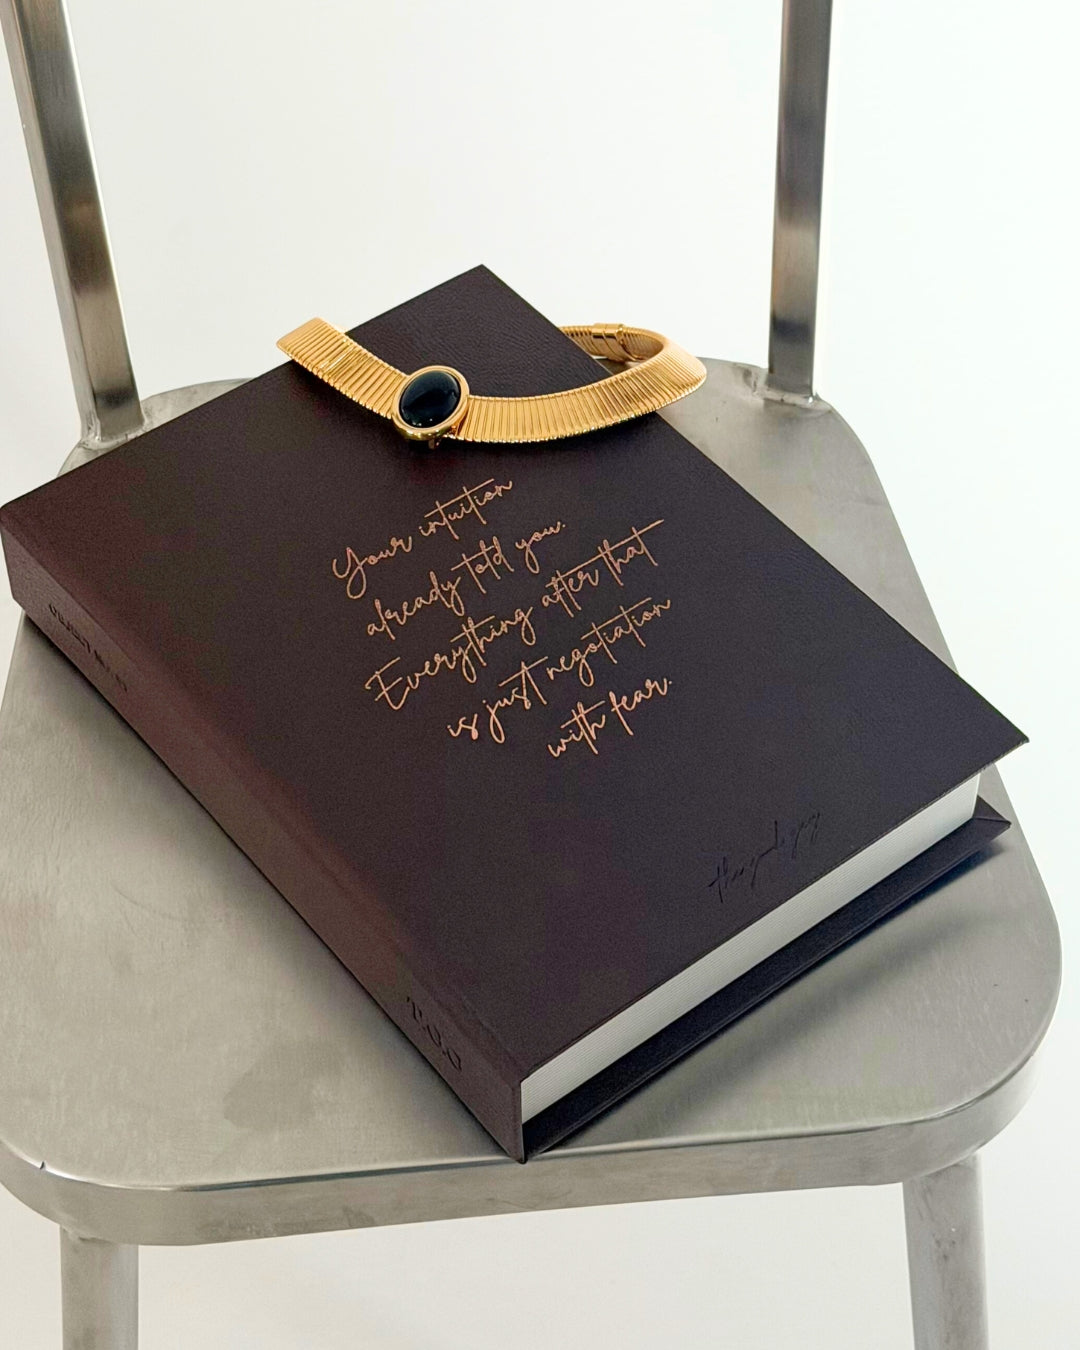 Your intuition
already told you.
Everything after that
is just negotiation
with fear.
T.O.O